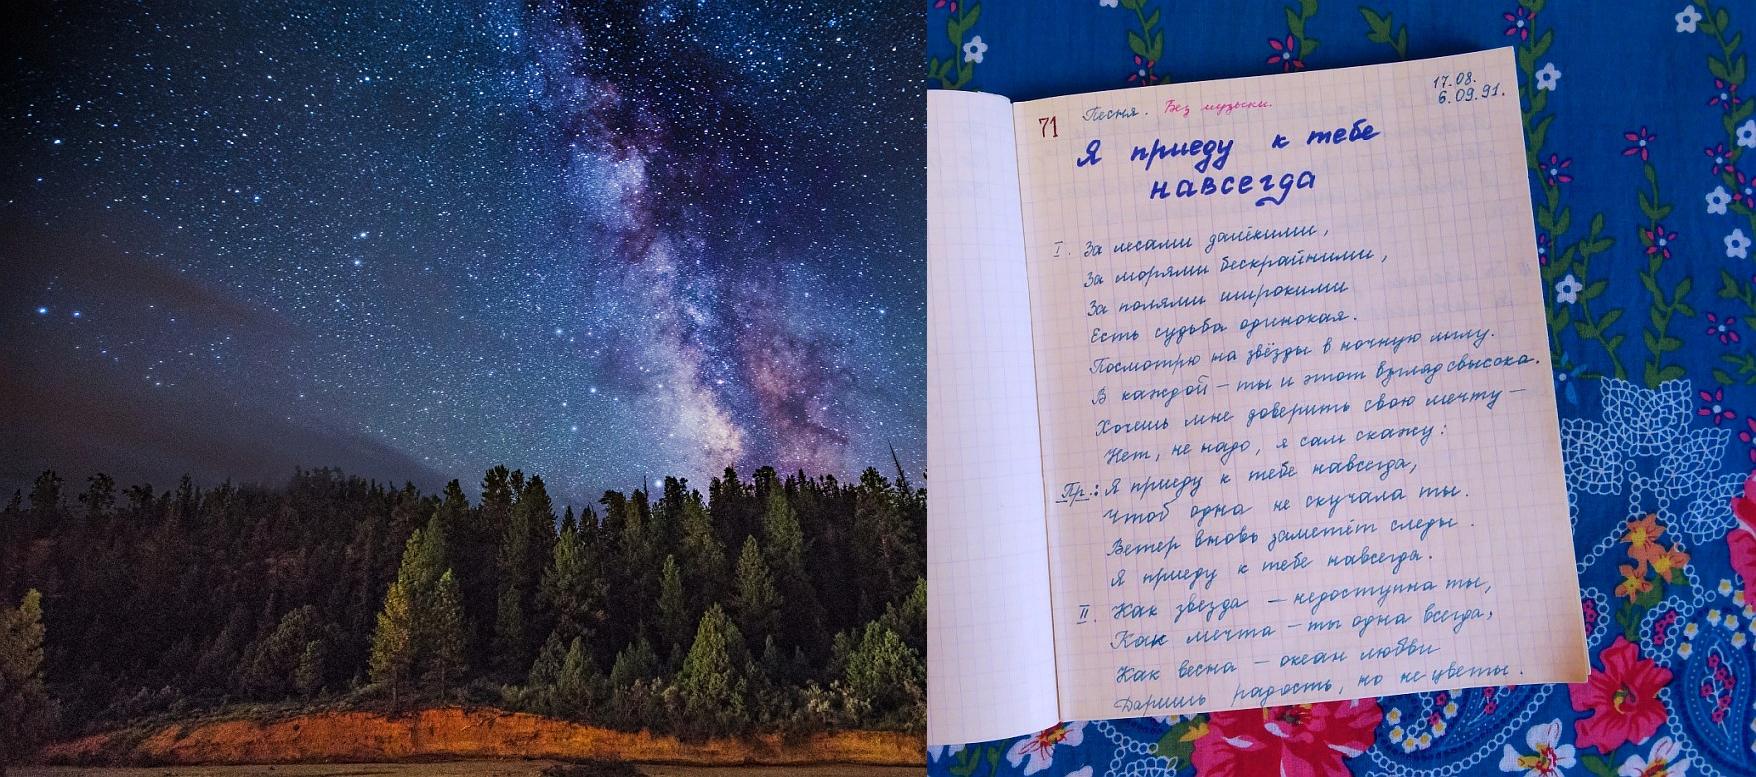 71 Песня. Без музыки.
17.08.
6.09.91.
Я приеду к тебе
навсегда
I. За лесами далёкими,
За морями бескрайними,
За полями широкими
Есть судьба одинокая.
Посмотрю на звёзды в ночную мглу.
В каждой – ты и этот взгляд свысока.
Хочешь мне доверить свою мечту –
Нет, не надо, я сам скажу:
Пр.: Я приеду к тебе навсегда,
Чтоб одна не скучала ты.
Ветер вновь заметёт следы.
Я приеду к тебе навсегда.
II. Как звезда – недоступна ты,
Как мечта – ты одна всегда,
Как весна – океан любви
Даришь радость, но не цветы.